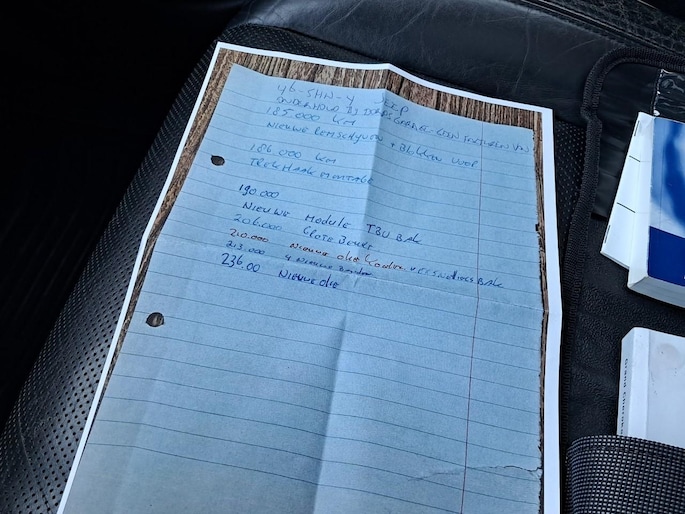 46-SHN-4 JEEP
ONDERHOUD BIJ GARAGE VAN
185.000 KM
NIEUWE REMSCHIJVEN + Blokken VOOR
186.000 KM
TREKHAAK MONTAGE
190.000
NIEUWE MODULE TBV BAK
206.000 GROTE Beurt
210.000 NIEUWE olie BAK
213.000 4 NIEUWE Banden
236.00 NIEUWE olie
Grand Cherokee